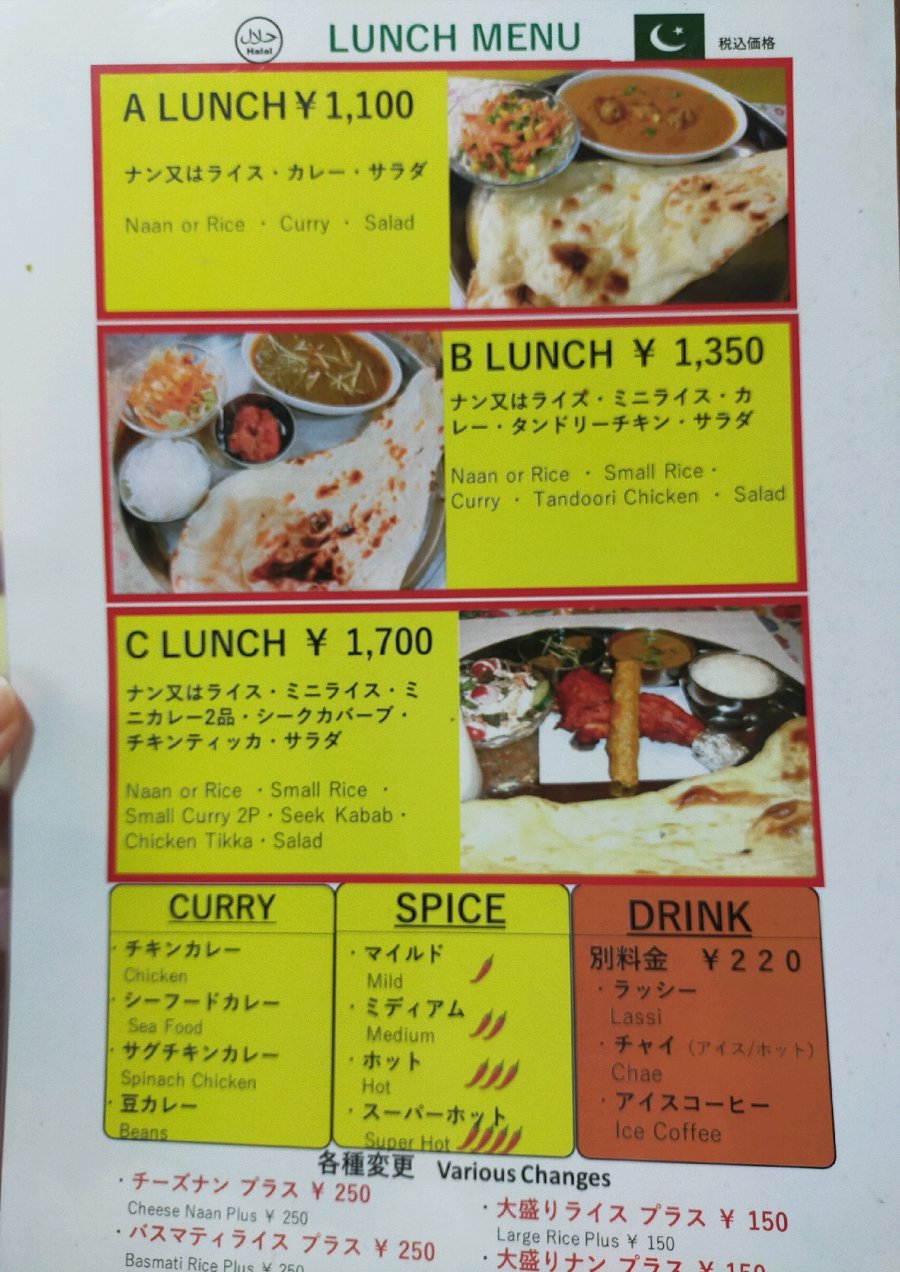 حلال
Halal
LUNCH MENU
税込価格
A LUNCH¥1,100
ナン又はライス・カレー・サラダ
Naan or Rice ・ Curry ・ Salad
B LUNCH ¥ 1,350
ナン又はライス・ミニライス・カ
レー・タンドリーチキン・サラダ
Naan or Rice ・ Small Rice・
Curry ・ Tandoori Chicken ・ Salad
C LUNCH ¥ 1,700
ナン又はライス・ミニライス・ミ
ニカレー2品・シークカバーブ・
チキンティッカ・サラダ
Naan or Rice ・Small Rice ・
Small Curry 2P・Seek Kabab・
Chicken Tikka・Salad
CURRY
・チキンカレー
Chicken
・シーフードカレー
Sea Food
・サグチキンカレー
Spinach Chicken
・豆カレー
Beans
SPICE
・マイルド
Mild
・ミディアム
Medium
・ホット
Hot
・スーパーホット
Super Hot
DRINK
別料金 ¥220
・ラッシー
Lassi
・チャイ（アイス/ホット）
Chae
・アイスコーヒー
Ice Coffee
各種変更 Various Changes
・チーズナン プラス ¥ 250
Cheese Naan Plus ¥ 250
・バスマティライス プラス ¥ 250
Basmati Rice Plus ¥ 250
・大盛りライス プラス ¥ 150
Large Rice Plus ¥ 150
・大盛りナン プラス ¥ 150